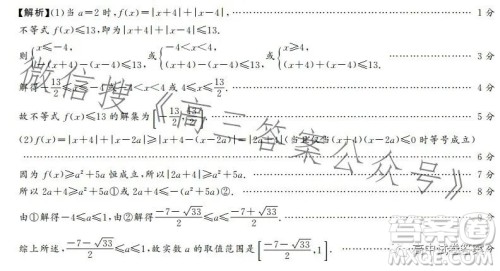 【解析】(1)当 a=2 时, f(x)=|x+4|+|x-4|, 1分
不等式 f(x)≤13,即为|x+4|+|x-4|≤13,
则 { x≤-4, -(x+4)-(x-4)≤13, 或 { -4<x<4, (x+4)-(x-4)≤13, 或 { x≥4, (x+4)+(x-4)≤13, 3分
解得 -13/2≤x≤-4 <x<4 或 4≤x≤13/2. 4分
故不等式 f(x)≤13 的解集为 [-13/2, 13/2]. 5分
(2)f(x)=|x+4|+|x-2a|≥|x+4-(x-2a)|=|2a+4|(当且仅当(x+4)(x-2a)≤0 时等号成立)
6分
因为 f(x)≥a²+5a 恒成立,所以|2a+4|≥a²+5a. 7分
所以 2a+4≥a²+5a①或 2a+4≤-(a²+5a)②. 8分
由①解得-4≤a≤1,由②解得 (-7-√33)/2≤a≤(-7+√33)/2. 9分
综上所述, (-7-√33)/2≤a≤1,故实数 a 的取值范围是 [(-7-√33)/2, 1].
微信搜《高三答案公众号》